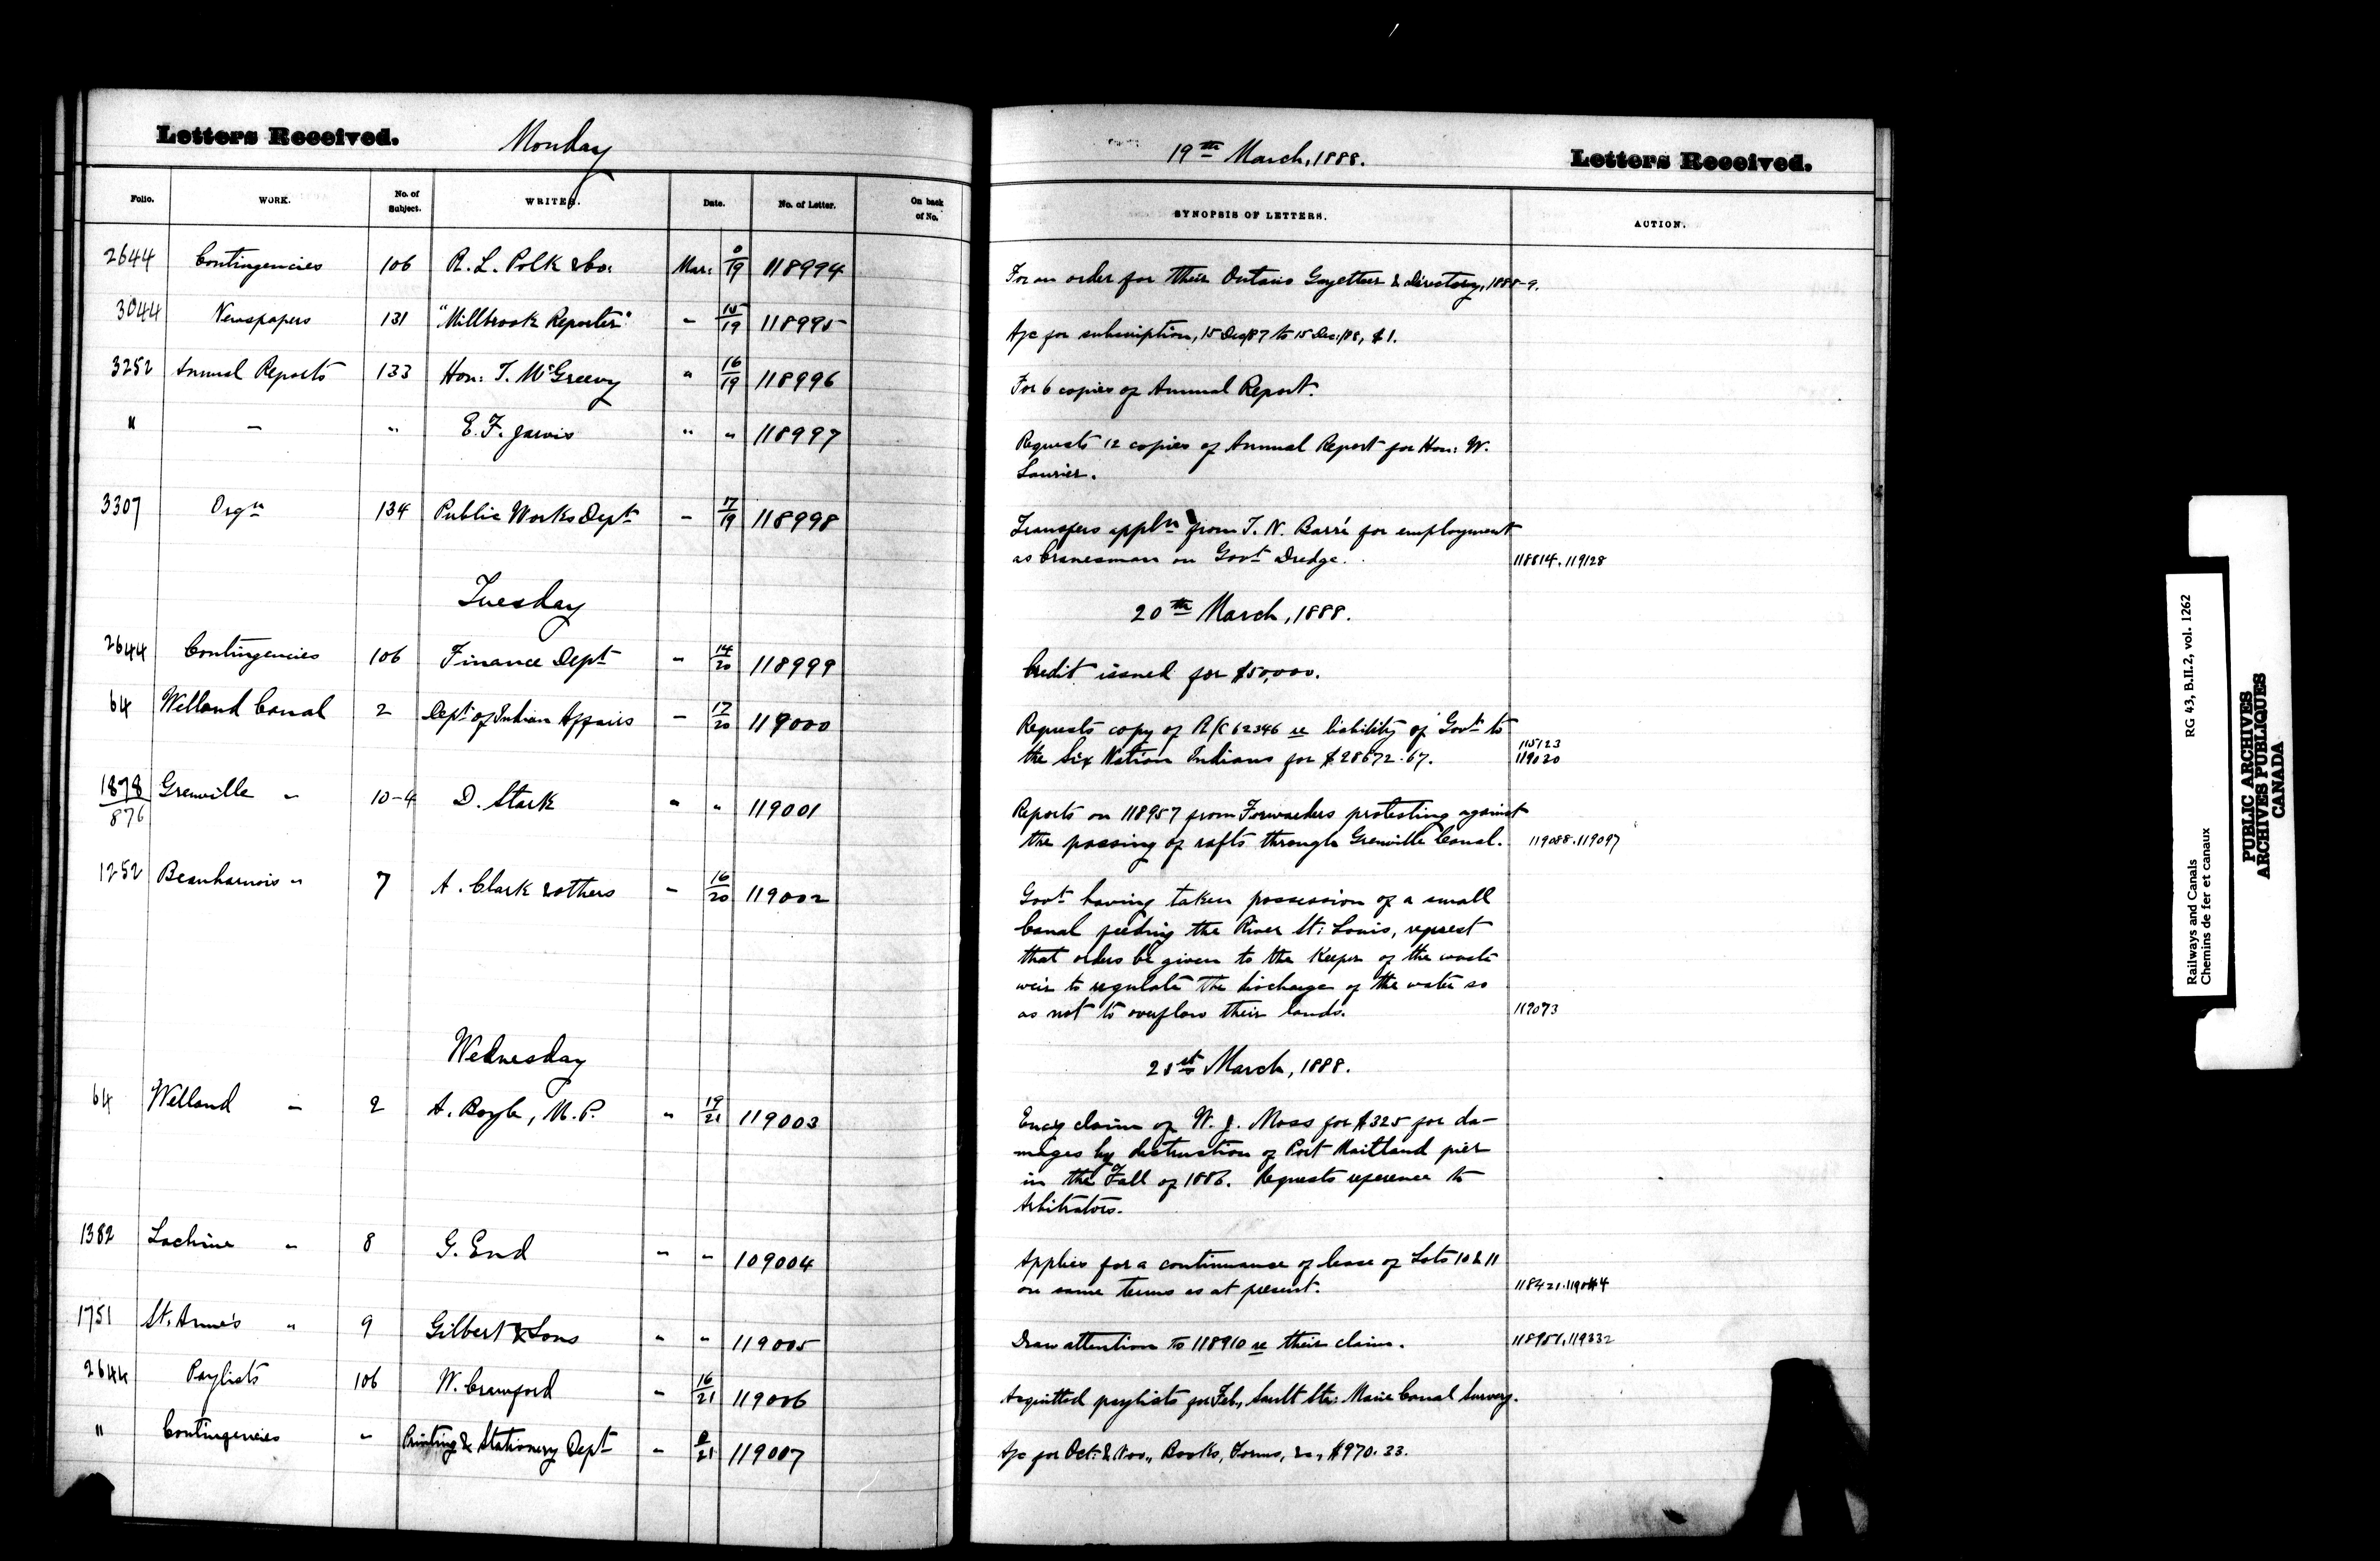 Letters Received. Monday
Folio. WORK. No. of Subject. WRITER. Date. No. of Letter. On back of No.
2644 Contingencies 106 R. L. Polk & Co. Mar: 0/19 118994
3044 Newspapers 131 "Millbrook Reporter" " 15/19 118995
3252 Annual Reports 133 Hon: T. McGreevy " 16/19 118996
" " " E. F. Jarvis " " 118997
3307 Orgn 134 Public Works Dept " 17/19 118998
Tuesday
2644 Contingencies 106 Finance Dept " 14/20 118999
64 Welland Canal 2 Dept of Indian Affairs " 17/20 119000
1878/876 Grenville " 10-4 D. Stark " " 119001
1252 Beauharnois " 7 A. Clark & others " 16/20 119002
Wednesday
64 Welland " 2 A. Boyle, M.P. " 19/21 119003
1382 Lachine " 8 G. End " " 109004
1751 St. Anne's " 9 Gilbert & Sons " " 119005
2644 Paylists 106 W. Crawford " 16/21 119006
" Contingencies " Printing & Stationery Dept " 0/21 119007
19th March, 1888. Letters Received.
SYNOPSIS OF LETTERS. ACTION.
For an order for their Ontario Gazetteer & Directory, 1888-9.
A/c for subscription, 15 Dec/87 to 15 Dec:/88, $1.
For 6 copies of Annual Report.
Requests 12 copies of Annual Report for Hon: W.
Laurier.
Transfers appln from T. N. Barré for employment
as Cranesman on Govt Dredge. 118814. 119128
20th March, 1888.
Credit issued for $50,000.
Requests copy of R/C 62346 re liability of Govt to
115123
the Six Nation Indians for $28672.67. 119020
Reports on 118957 from Forwarders protesting against
the passing of rafts through Grenville Canal. 119088. 119097
Govt having taken possession of a small
Canal feeding the River St: Louis, request
that orders be given to the Keeper of the waste
weir to regulate the discharge of the water so
as not to overflow their lands. 119073
21st March, 1888.
Encg claim of W. J. Moss for $325 for da-
mages by destruction of Port Maitland pier
in the Fall of 1886. Requests reference to
Arbitrators.
Applies for a continuance of lease of Lots 10 & 11
on same terms as at present. 118421. 119044
Draw attention to 118910 re their claim. 118951, 119332
Acquitted paylists for Feb., Sault Ste: Marie Canal Survey.
A/c for Oct: & Nov., Books, Forms, &c., $970.33.
RG 43, B.II.2, vol. 1262
Railways and Canals
Chemins de fer et canaux
PUBLIC ARCHIVES
ARCHIVES PUBLIQUES
CANADA